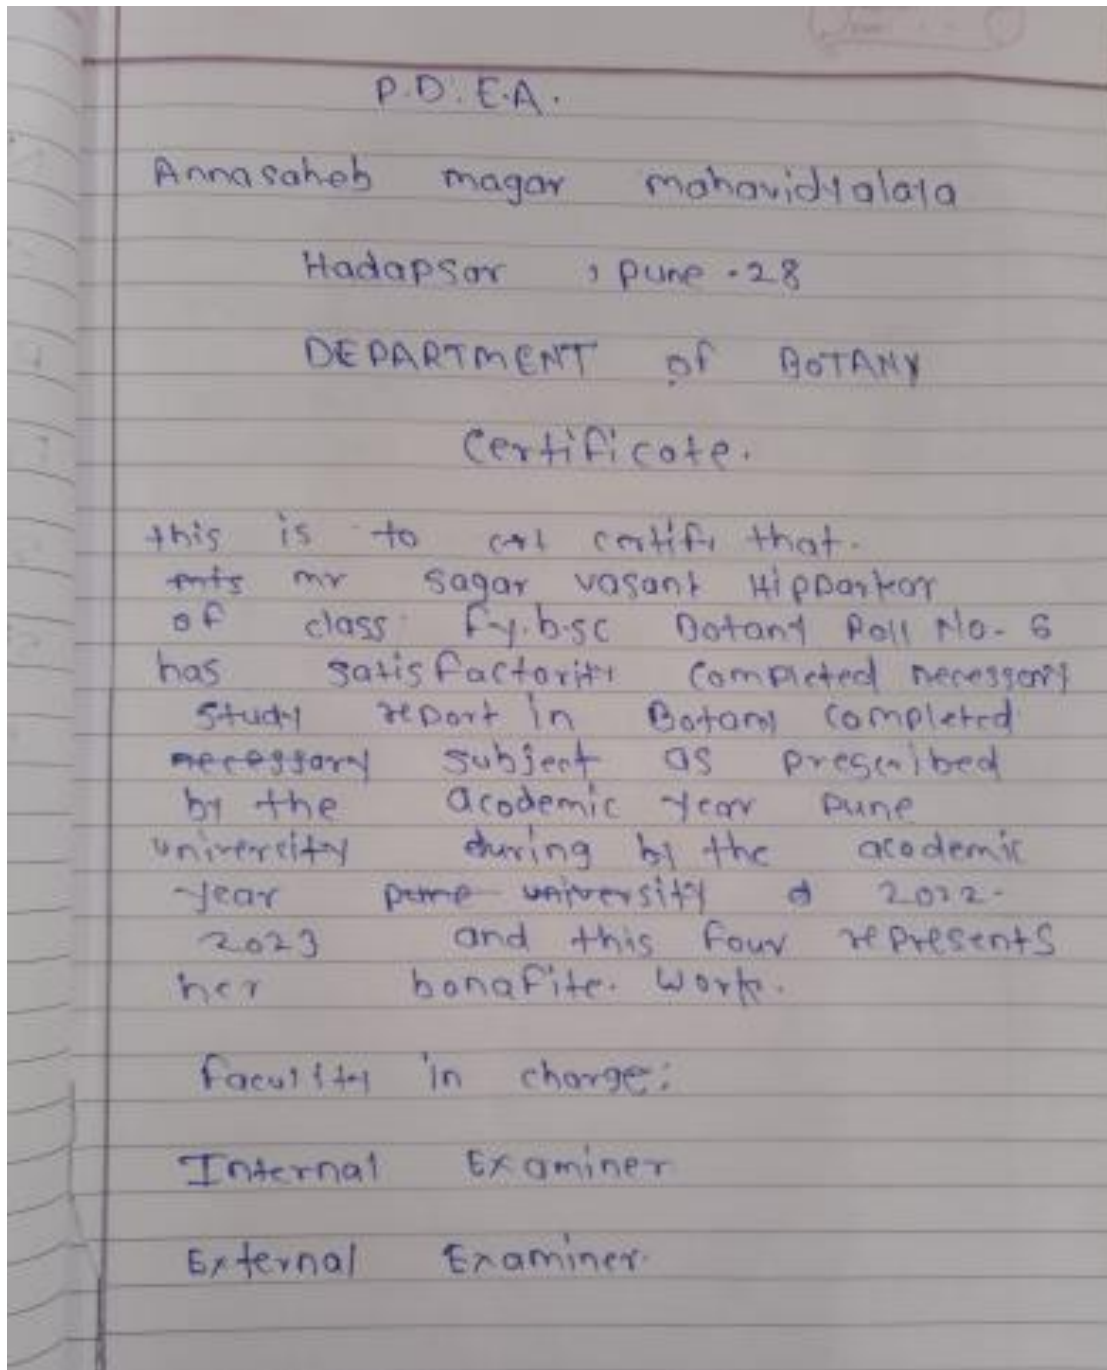 P.D.E.A.
Annasaheb magar mahavidyalaya
Hadapsar , pune -28
DEPARTMENT of BOTANY
Certificate.
this is to certifi that.
mr sagar vasant Hipparkar
of class f.y.b.sc Botany Roll No- 6
has satisfactority completed necessory
study report in Botany completed
necessary subject as prescribed
by the academic year pune
university during by the academic
year pune university 2022-
2023 and this four represents
her bonafite. work.
faculity in charge:
Internal Examiner
External Examiner.